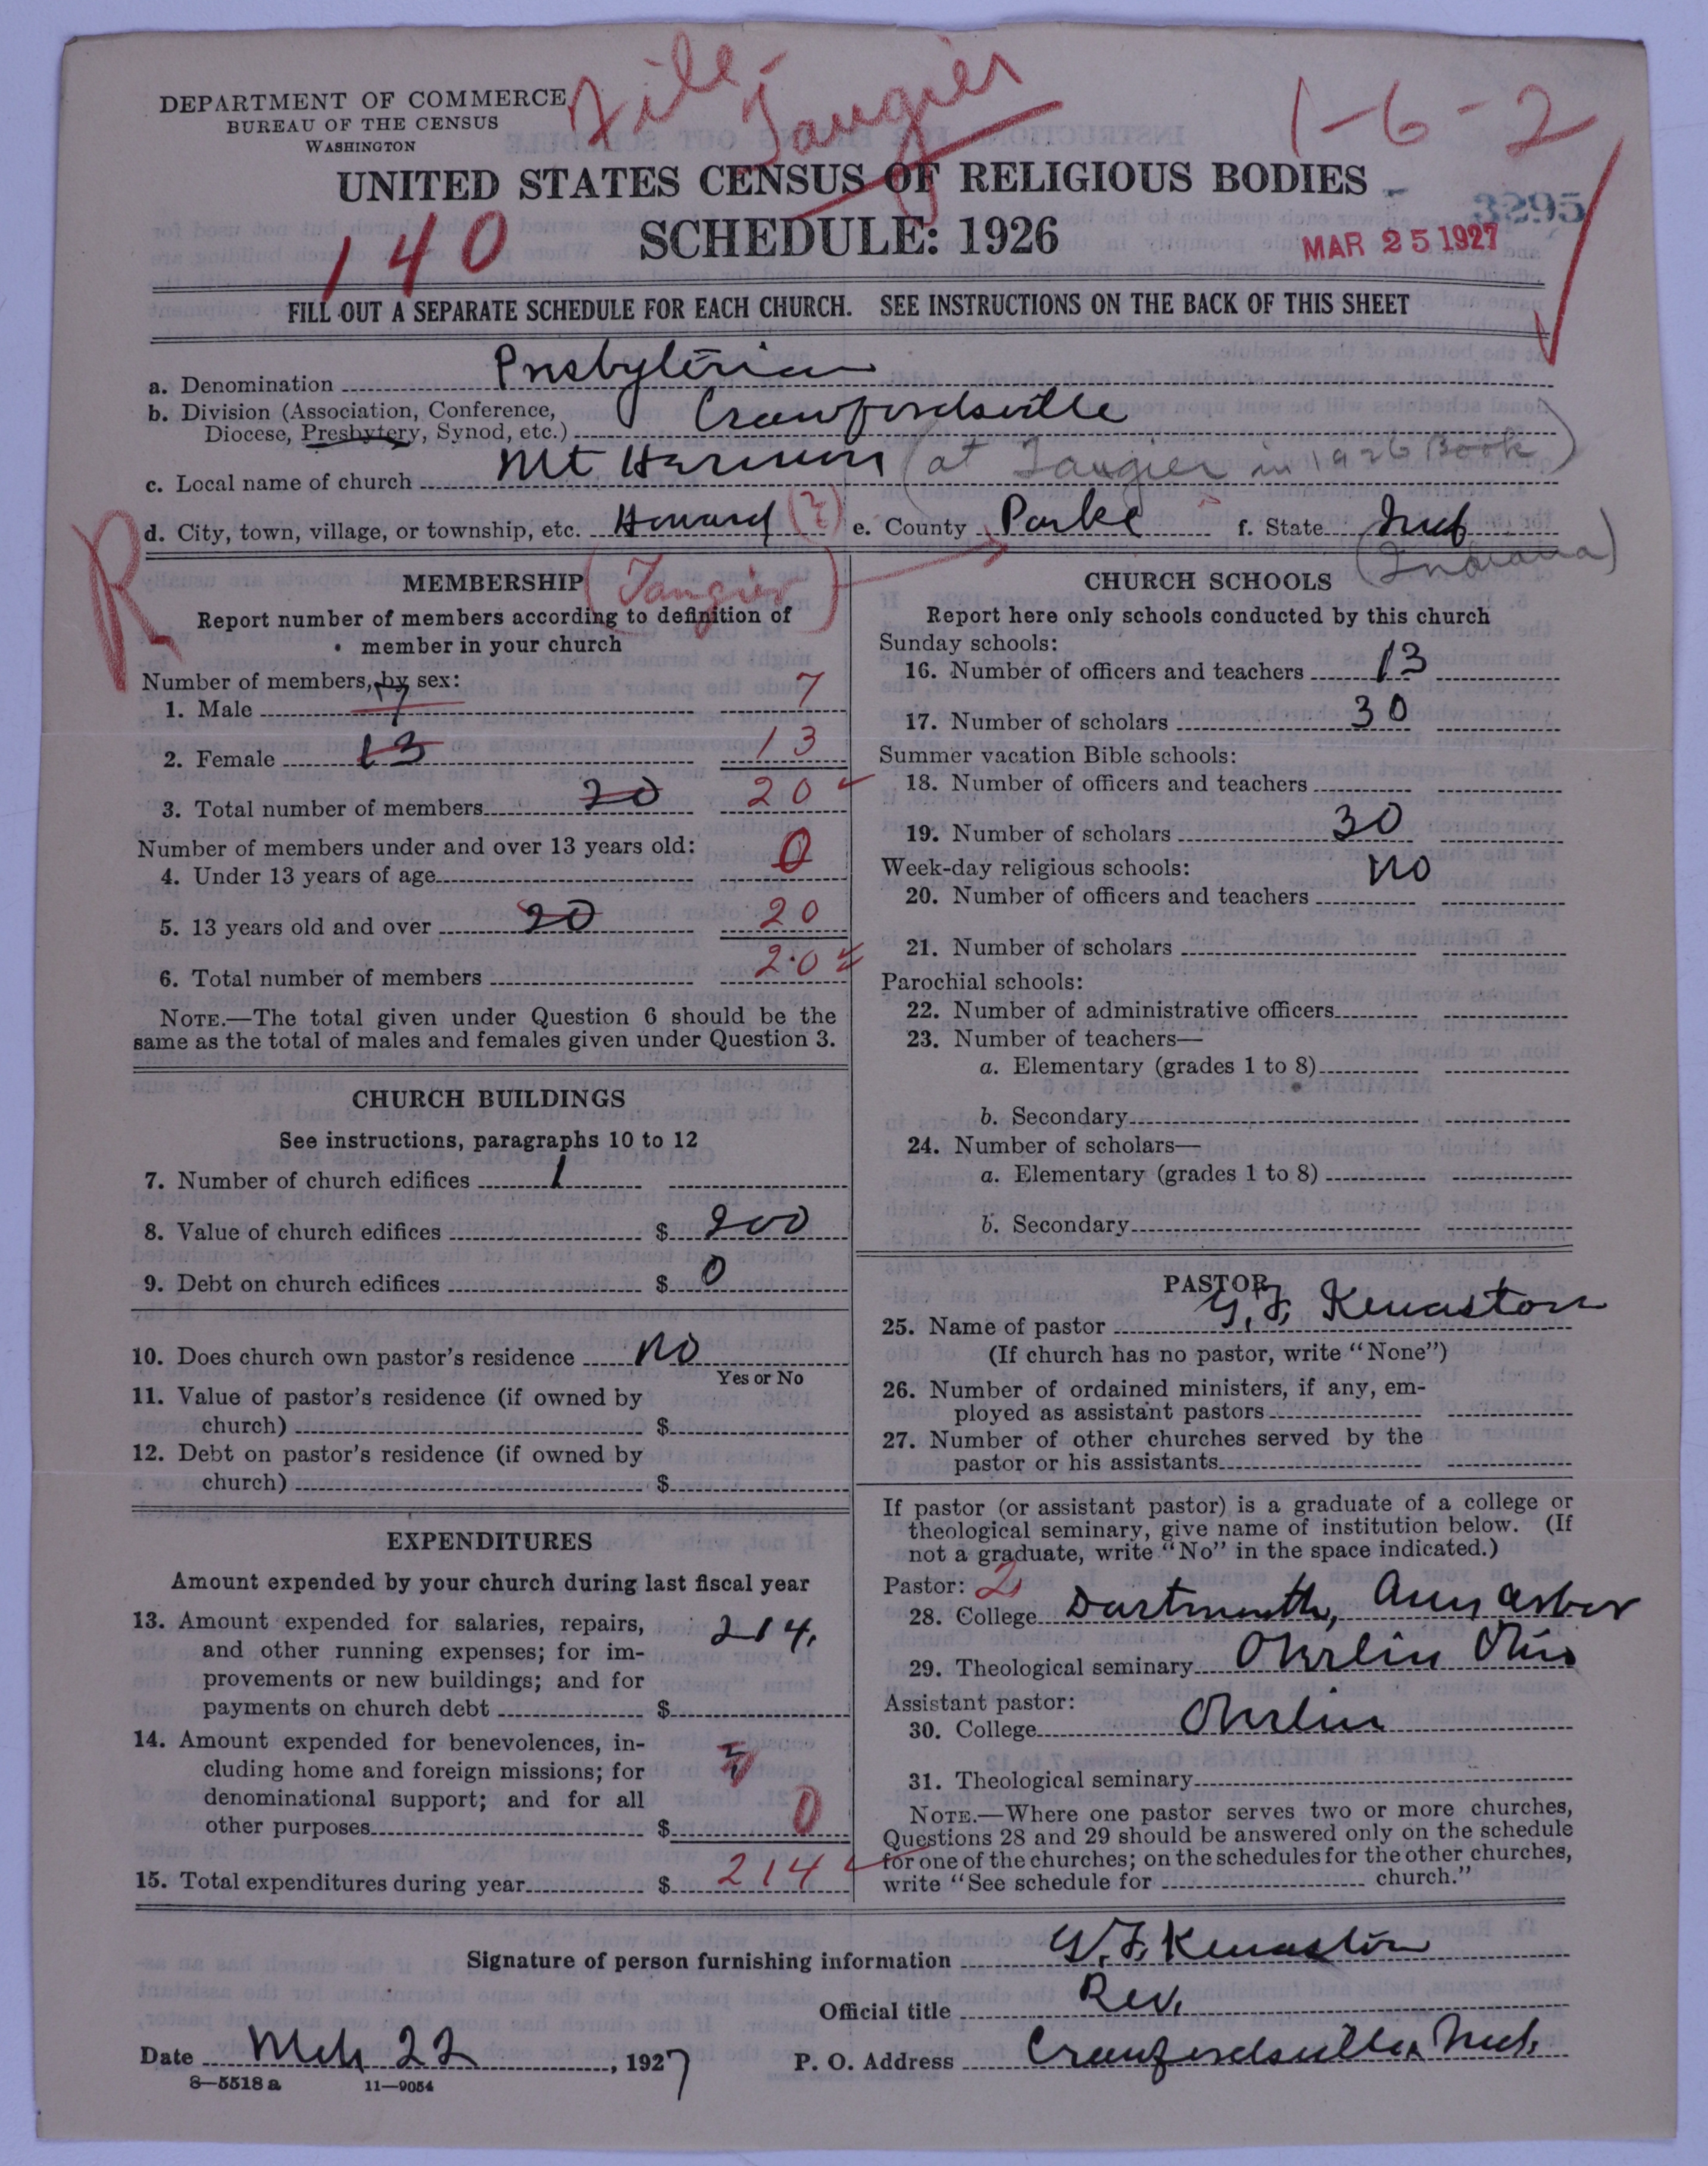 File-
Tangier
1-6-2
DEPARTMENT OF COMMERCE
BUREAU OF THE CENSUS
WASHINGTON
UNITED STATES CENSUS OF RELIGIOUS BODIES
SCHEDULE: 1926
140
3295
MAR 25 1927
FILL OUT A SEPARATE SCHEDULE FOR EACH CHURCH. SEE INSTRUCTIONS ON THE BACK OF THIS SHEET
a. Denomination Presbyterian
b. Division (Association, Conference,
Diocese, Presbytery, Synod, etc.) Crawfordsville
c. Local name of church Mt Harmon (at Tangier in 1926 Book)
d. City, town, village, or township, etc. Howard (?) e. County Parke f. State Ind
(Tangier) (Indiana)
R
MEMBERSHIP
Report number of members according to definition of
member in your church
Number of members, by sex:
1. Male 7 7
2. Female 13 13
3. Total number of members 20 20
Number of members under and over 13 years old:
4. Under 13 years of age 0
5. 13 years old and over 20 20
6. Total number of members 20
NOTE.—The total given under Question 6 should be the
same as the total of males and females given under Question 3.
CHURCH BUILDINGS
See instructions, paragraphs 10 to 12
7. Number of church edifices 1
8. Value of church edifices $ 200
9. Debt on church edifices $ 0
10. Does church own pastor's residence No
Yes or No
11. Value of pastor's residence (if owned by
church) $
12. Debt on pastor's residence (if owned by
church) $
EXPENDITURES
Amount expended by your church during last fiscal year
13. Amount expended for salaries, repairs, 214.
and other running expenses; for im-
provements or new buildings; and for
payments on church debt $
14. Amount expended for benevolences, in-
cluding home and foreign missions; for
denominational support; and for all
other purposes $ 0
15. Total expenditures during year $ 214
CHURCH SCHOOLS
Report here only schools conducted by this church
Sunday schools:
16. Number of officers and teachers 13
17. Number of scholars 30
Summer vacation Bible schools:
18. Number of officers and teachers
19. Number of scholars 30
Week-day religious schools: No
20. Number of officers and teachers
21. Number of scholars
Parochial schools:
22. Number of administrative officers
23. Number of teachers—
a. Elementary (grades 1 to 8)
b. Secondary
24. Number of scholars—
a. Elementary (grades 1 to 8)
b. Secondary
PASTOR
25. Name of pastor G. F. Kenaston
(If church has no pastor, write "None")
26. Number of ordained ministers, if any, em-
ployed as assistant pastors
27. Number of other churches served by the
pastor or his assistants
If pastor (or assistant pastor) is a graduate of a college or
theological seminary, give name of institution below. (If
not a graduate, write "No" in the space indicated.)
Pastor: 2
28. College Dartmouth, Ann Arbor
29. Theological seminary Oberlin Ohio
Assistant pastor:
30. College Oberlin
31. Theological seminary
NOTE.—Where one pastor serves two or more churches,
Questions 28 and 29 should be answered only on the schedule
for one of the churches; on the schedules for the other churches,
write "See schedule for church."
Signature of person furnishing information G. F. Kenaston
Official title Rev.
Date Mch 22, 1927 P. O. Address Crawfordsville, Ind.
8—5518 a 11—9054